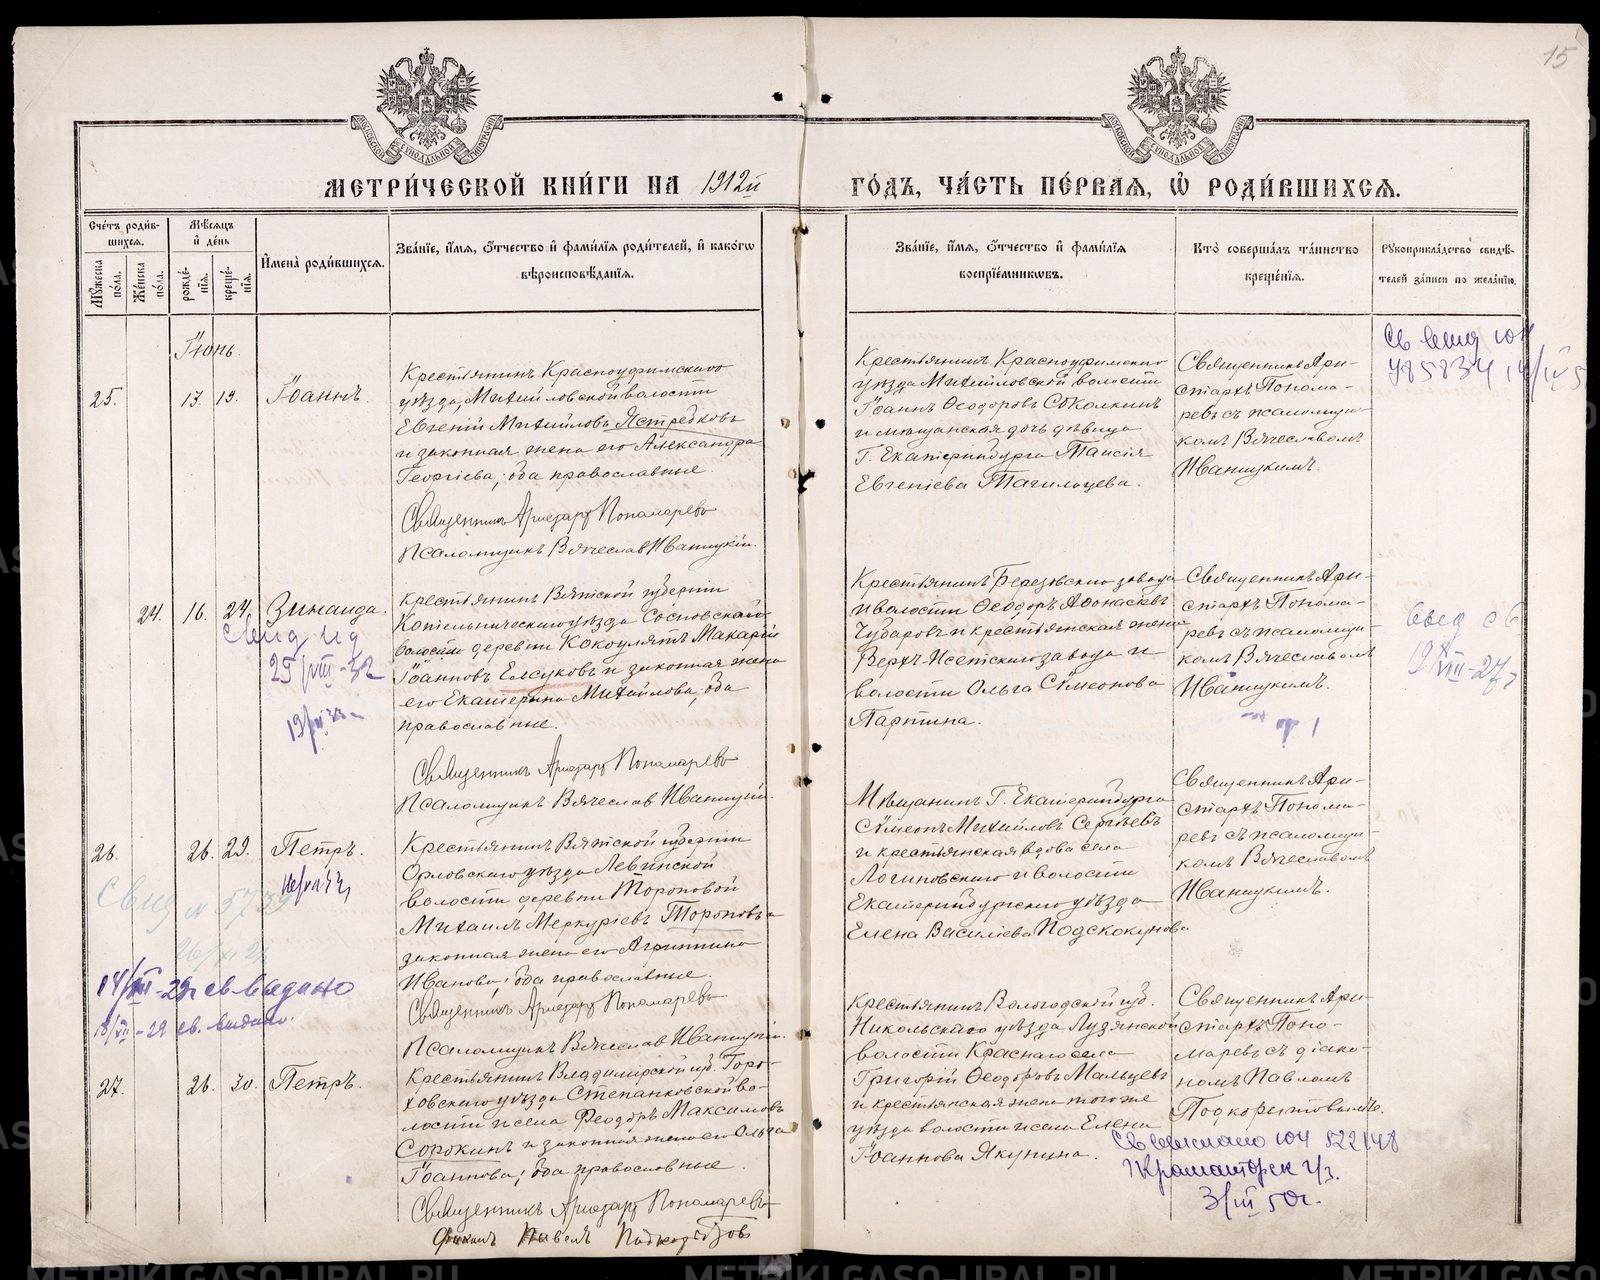 15
МОСКОВСКОЙ СѴНОДАЛЬНОЙ ТИПОГРАФІИ
МОСКОВСКОЙ СѴНОДАЛЬНОЙ ТИПОГРАФІИ
МЕТРИ́ЧЕСКОЙ КНИ́ГИ НА 1912й
ГО́ДЪ, ЧА́СТЬ ПЕ́РВАЯ, Ѡ РОДИ́ВШИХСЯ.
Сче́тъ роди́в-
шихся.
Мѣ́сяцъ
и де́нь
Му́жеска по́ла.
Же́нска по́ла.
рожде́нїя.
креще́нїя.
Имена̀ роди́вшихся.
Зва́нїе, и́мя, о́тчество и фами́лїя роди́телей, и како́гѡ
вѣроисповѣ́данїя.
Зва́нїе, и́мя, о́тчество и фами́лїя
воспрїе́мниковъ.
Кто̀ соверша́лъ та́инство
креще́нїя.
Рукоприкла́дство свидѣ́-
телей за́писи по жела́нїю.
Іюнь.
25.
17. 19.
Іоаннъ.
Крестьянинъ Красноуфимскаго
уѣзда, Михайловской волости
Евгеній Михайловъ Ястребковъ
и законная жена его Александра
Георгіева; оба православные.
Священникъ Аристархъ Пономаревъ
Псаломщикъ Вячеславъ Иваницкій.
Крестьянинъ Красноуфимскаго
уѣзда Михайловской волости
Іоаннъ Ѳеодоровъ Соколкинъ
и мѣщанская дочь дѣвица
Г. Екатеринбурга Таисія
Евгеніева Тагильцева.
Священникъ Ари-
стархъ Понома-
ревъ съ псаломщи-
комъ Вячеславомъ
Иваницкимъ.
24.
16. 24.
Зинаида.
25/VIII-32
Крестьянинъ Вятской губерніи
Котельническаго уѣзда Сосновской
волости деревни Кокоулятъ Макарій
Іоанновъ Елсуковъ и законная жена
его Екатерина Михайлова; оба
православные.
Священникъ Аристархъ Пономаревъ
Псаломщикъ Вячеславъ Иваницкій.
Крестьянинъ Березовскаго завода
и волости Ѳеодоръ Аѳонасіевъ
Чударовъ и крестьянская жена
Верхъ-Исетскаго завода и
волости Ольга Сѵмеонова
Партина.
Священникъ Ари-
стархъ Понома-
ревъ съ псаломщи-
комъ Вячеславомъ
Иваницкимъ.
26.
26. 29.
Петръ.
Свид № 5739
14/VII-29г св. выдано
18/VII-29 св. выдано.
Крестьянинъ Вятской губерніи
Орловскаго уѣзда Левинской
волости деревни Тороповой
Михаилъ Меркуріевъ Тороповъ и
законная жена его Агриппина
Иванова; оба православные.
Священникъ Аристархъ Пономаревъ
Псаломщикъ Вячеславъ Иваницкій.
Мѣщанинъ Г. Екатеринбурга
Сѵмеонъ Михайловъ Сергѣевъ
и крестьянская вдова села
Логиновскаго и волости
Екатеринбургскаго уѣзда
Елена Василіева Подскокунова
Священникъ Ари-
стархъ Понома-
ревъ съ псаломщи-
комъ Вячеславомъ
Иваницкимъ.
27.
26. 30.
Петръ.
Крестьянинъ Владимірской губ. Горо-
ховскаго уѣзда Степанковской во-
лости и села Ѳеодоръ Максимовъ
Сорокинъ и законная жена его Ольга
Іоаннова; оба православные.
Священникъ Аристархъ Пономаревъ
Діаконъ Павелъ Подкорытовъ
Крестьянинъ Вологодской губ.
Никольскаго уѣзда Лузянской
волости Краснаго села
Григорій Ѳеодоровъ Мальцевъ
и крестьянская жена того же
уѣзда волости и села Елена
Іоаннова Якунина.
Священникъ Ари-
стархъ Поно-
маревъ съ діако-
номъ Павломъ
Подкорытовымъ.
522148
3/III 50г.
METRIKI.GASO-URAL.RU